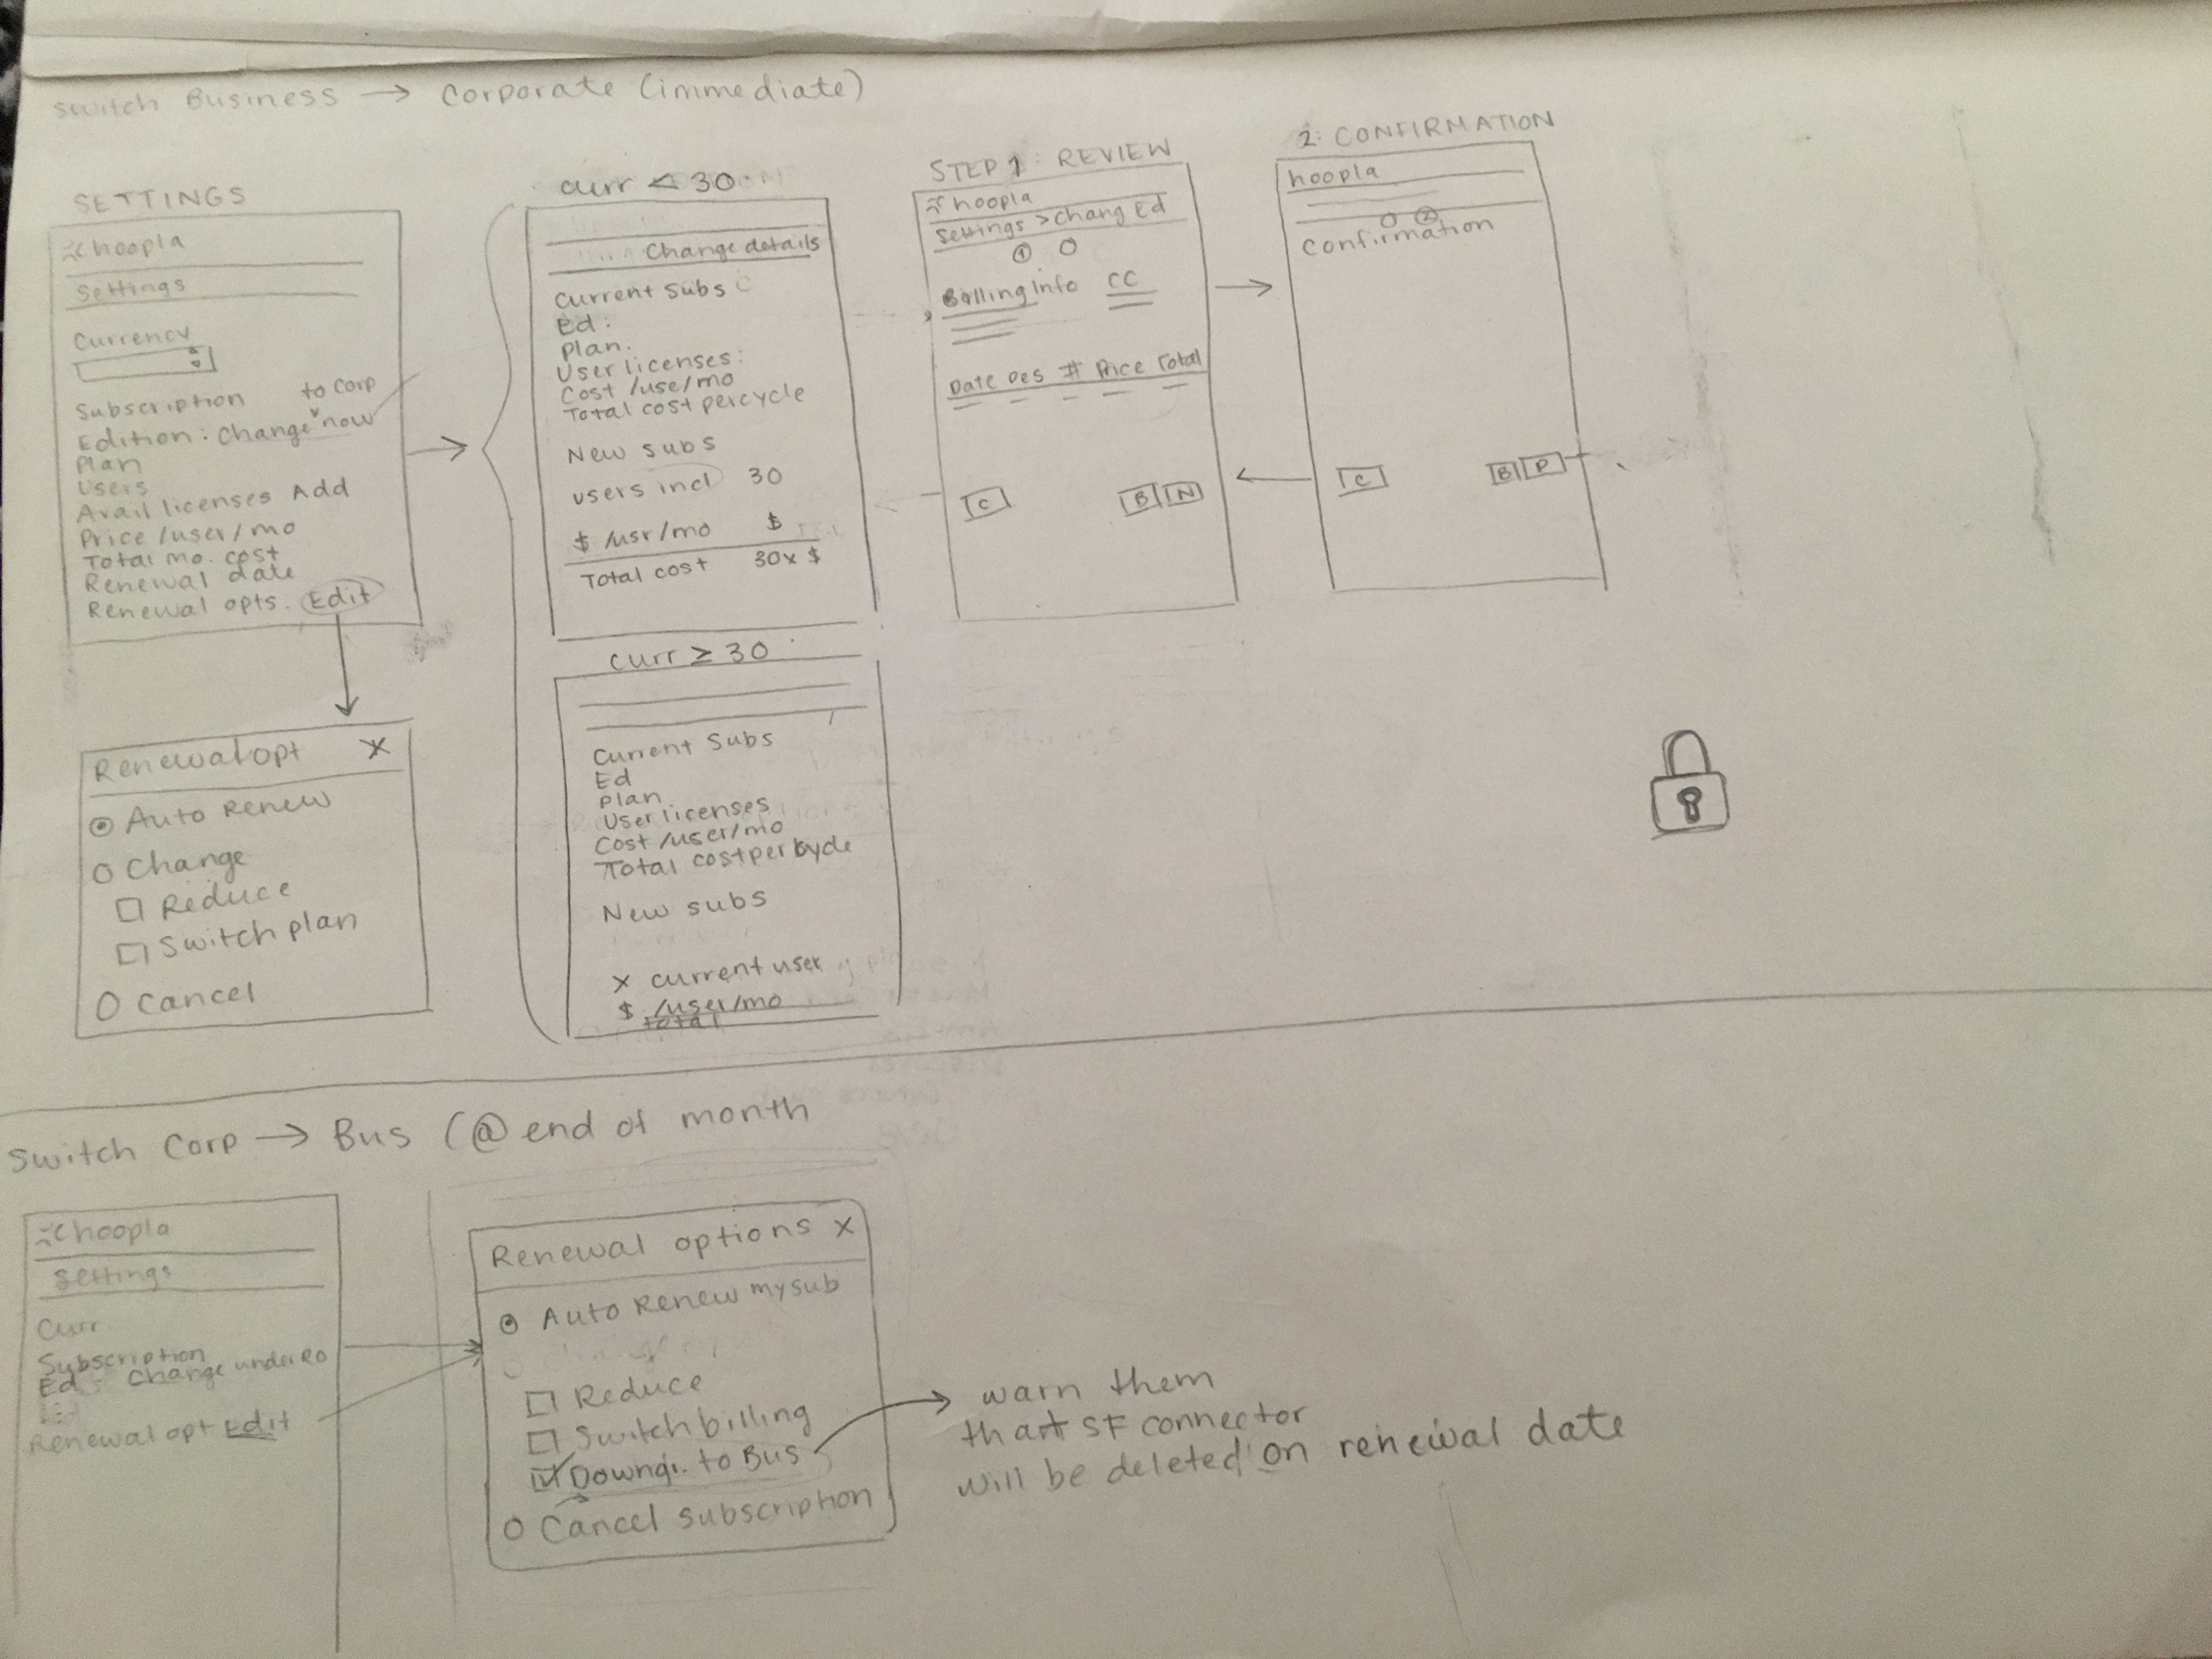 Switch Business → Corporate (immediate)
SETTINGS
hoopla
Settings
Currency
Subscription
to Corp
Edition: Change ˅ now
Plan
Users
Avail licenses Add
Price /user/mo
Total mo. cost
Renewal date
Renewal opts. Edit
Renewal opt X
Auto Renew
Change
Reduce
Switch plan
Cancel
curr < 30
Change details
Current Subs
Ed:
Plan.
User licenses:
Cost /use/mo
Total cost per cycle
New subs
users incl 30
$ /usr/mo $
Total cost 30x $
curr ≥ 30
Current Subs
Ed
Plan
User licenses
Cost /user/mo
Total cost per
New subs
X current user
$ /user/mo
total
STEP 1: REVIEW
hoopla
Settings > Chang Ed
1
Billing Info CC
Date Des # Price Total
C B N
2: CONFIRMATION
hoopla
2
Confirmation
C B P
Switch Corp → Bus (@ end of month
hoopla
Settings
Curr
Subscription
Ed - Change under RO
Renewal opt Edit
Renewal options X
Auto Renew my sub
Reduce
Switch billing
Downgr. to Bus
Cancel subscription
warn them
that SF connector
will be deleted on renewal date